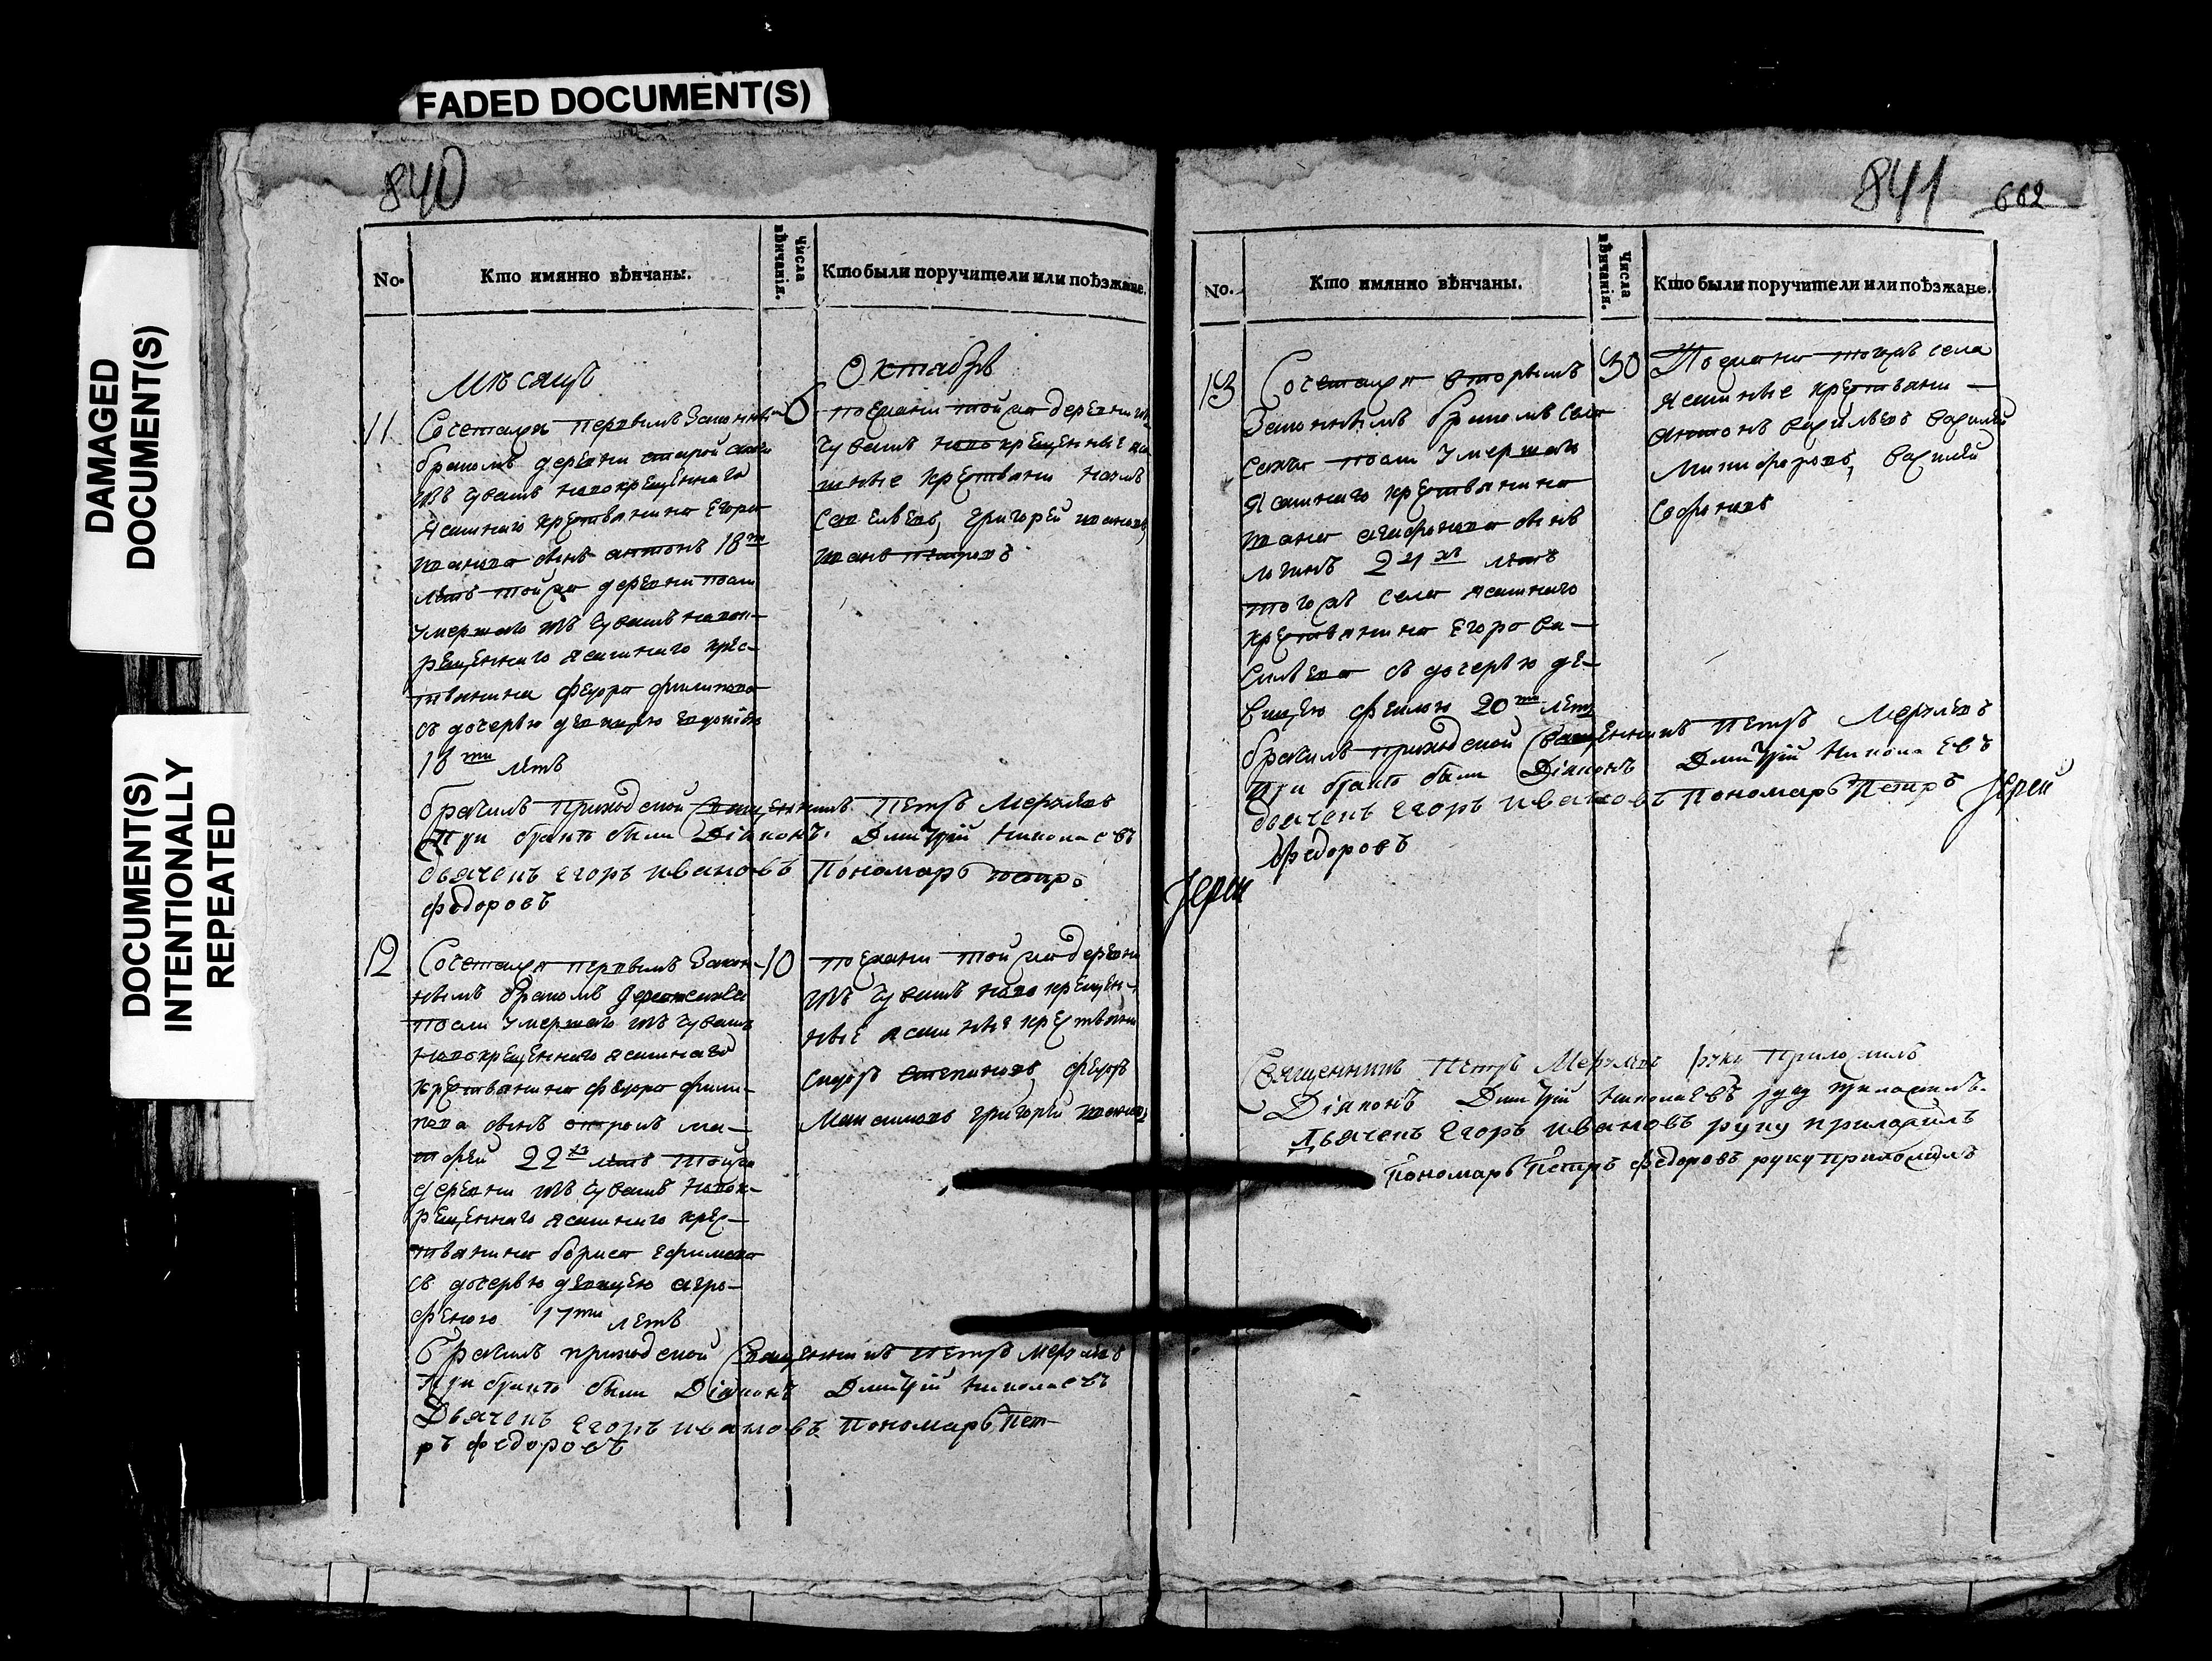 FADED DOCUMENT(S)
DAMAGED
DOCUMENT(S)
DOCUMENT(S)
INTENTIONALLY
REPEATED
840
No.
Кто имянно вѣнчаны.
Числа
вѣнчанія.
Кто были поручители или поѣзжане.
Мѣсяцъ
Октябрь
11
Сочетался первымъ Законнымъ
бракомъ деревни старой
изъ Чувашъ новокрещеннаго
Ясашнаго крестьянина Егора
иванова сынъ антонъ 18ти
лѣтъ той же деревни поки
умершаго изъ Чувашъ новок-
рещеннаго ясашнаго крес-
тьянина федора филипова
съ дочерью девицею евдокіею
18ти лѣтъ
6
поезжани той же деревни изъ
Чувашъ новокрещенные яса
шные крестьяни наумъ
Савельевъ, григорей ивановъ,
иванъ петровъ
бракилъ приходской Священникъ Петръ
При бракѣ были Діаконъ Димитрій Николаевъ
дьячекъ Егоръ Ивановъ Пономарь петръ
федоровъ
12
Сочетался первымъ Закон-
нымъ бракомъ деревни
поки умершаго изъ Чувашъ
новокрещеннаго ясашнаго
крестьянина федора фили-
пова сынъ отрокъ ма-
тфей 22хъ лѣтъ той же
деревни изъ Чувашъ новок-
рещеннаго ясашнаго крес-
тьянина бориса ефимова
съ дочерью девицею агро-
феною 17ти лѣтъ
10
поезжани той же деревни
изъ Чувашъ новокрещен-
ные ясашные крестьяни
Сидоръ Степановъ, федоръ
Максимовъ григорей ивановъ,
Бракилъ приходской Священникъ Петръ
При бракѣ были Діаконъ Димитрій Николаевъ
Дьячекъ Егоръ Ивановъ Пономарь Пет-
ръ федоровъ
841
662
No.
Кто имянно вѣнчаны.
Числа
вѣнчанія.
Кто были поручители или поѣзжане.
13
Сочетался вторымъ
Законнымъ бракомъ села
поки умершаго
Ясашнаго крестьянина
ивана агафонова сынъ
логинъ 24хъ лѣтъ
того жъ села ясашнаго
крестьянина Егора ва-
сильева съ дочерью де-
вицею 20ти лѣтъ
30
Поезжани тогожъ села
Ясашные крестьяни
антонъ васильевъ василей
Никифоровъ, василей
Софоновъ
бракилъ приходской Священникъ Петръ
При бракѣ были Діаконъ Димитрій Николаевъ
дьячекъ Егоръ Ивановъ Пономарь Петръ
федоровъ
Іерей
Іерей
Священникъ Петръ руку приложилъ
Діаконъ Димитрій Николаевъ руку приложилъ.
Дьячекъ Егоръ Ивановъ руку приложилъ
Пономарь Петръ федоровъ руку приложилъ